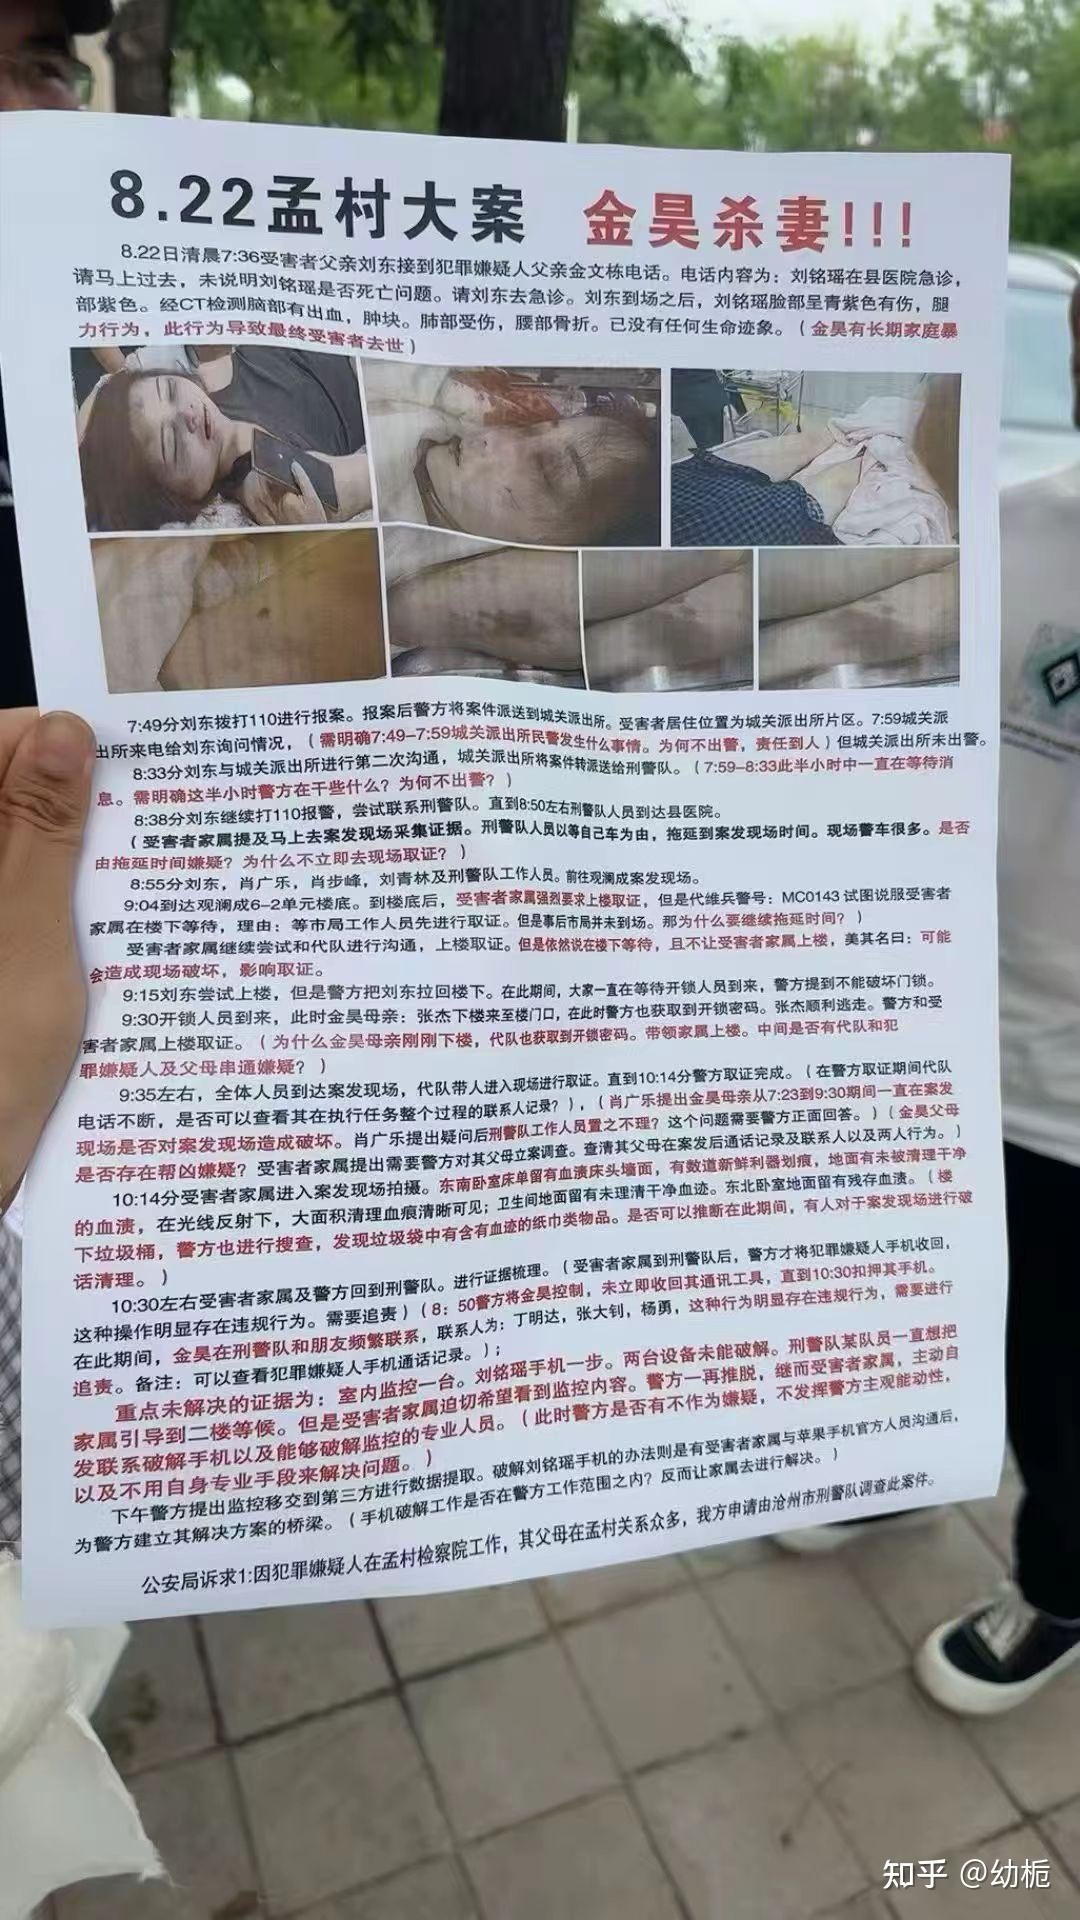 8.22孟村大案 金昊杀妻!!!
8.22日清晨7:36受害者父亲刘东接到犯罪嫌疑人父亲金文栋电话。电话内容为：刘铭瑶在县医院急诊，
请马上过去，未说明刘铭瑶是否死亡问题。请刘东去急诊。刘东到场之后，刘铭瑶脸部呈青紫色有伤，腿
部紫色。经CT检测脑部有出血，肿块。肺部受伤，腰部骨折。已没有任何生命迹象。（金昊有长期家庭暴
力行为，此行为导致最终受害者去世）
7:49分刘东拨打110进行报案。报案后警方将案件派送到城关派出所。受害者居住位置为城关派出所片区。7:59城关派
出所来电给刘东询问情况，（需明确7:49-7:59城关派出所民警发生什么事情。为何不出警，责任到人）但城关派出所未出警。
8:33分刘东与城关派出所进行第二次沟通，城关派出所将案件转派送给刑警队。（7:59-8:33此半小时中一直在等待消
息。需明确这半小时警方在干些什么？为何不出警？）
8:38分刘东继续打110报警，尝试联系刑警队。直到8:50左右刑警队人员到达县医院。
（受害者家属提及马上去案发现场采集证据。刑警队人员以等自己车为由，拖延到案发现场时间。现场警车很多。是否
由拖延时间嫌疑？为什么不立即去现场取证？）
8:55分刘东，肖广乐，肖步峰，刘青林及刑警队工作人员。前往观澜成案发现场。
9:04到达观澜成6-2单元楼底。到楼底后，受害者家属强烈要求上楼取证，但是代维兵警号：MC0143试图说服受害者
家属在楼下等待，理由：等市局工作人员先进行取证。但是事后市局并未到场。那为什么要继续拖延时间？）
受害者家属继续尝试和代队进行沟通，上楼取证。但是依然说在楼下等待，且不让受害者家属上楼，美其名曰：可能
会造成现场破坏，影响取证。
9:15刘东尝试上楼，但是警方把刘东拉回楼下。在此期间，大家一直在等待开锁人员到来，警方提到不能破坏门锁。
9:30开锁人员到来，此时金昊母亲：张杰下楼来至楼门口，在此时警方也获取到开锁密码。张杰顺利逃走。警方和受
害者家属上楼取证。（为什么金昊母亲刚刚下楼，代队也获取到开锁密码。带领家属上楼。中间是否有代队和犯
罪嫌疑人及父母串通嫌疑？）
9:35左右，全体人员到达案发现场，代队带人进入现场进行取证。直到10:14分警方取证完成。（在警方取证期间代队
电话不断，是否可以查看其在执行任务整个过程的联系人记录？），（肖广乐提出金昊母亲从7:23到9:30期间一直在案发
现场是否对案发现场造成破坏。肖广乐提出疑问后刑警队工作人员置之不理？这个问题需要警方正面回答。）（金昊父母
是否存在帮凶嫌疑？受害者家属提出需要警方对其父母立案调查。查清其父母在案发后通话记录及联系人以及两人行为。）
10:14分受害者家属进入案发现场拍摄。东南卧室床单留有血渍床头墙面，有数道新鲜利器划痕，地面有未被清理干净
的血渍，在光线反射下，大面积清理血痕清晰可见；卫生间地面留有未理清干净血迹。东北卧室地面留有残存血渍。（楼
下垃圾桶，警方也进行搜查，发现垃圾袋中有含有血迹的纸巾类物品。是否可以推断在此期间，有人对于案发现场进行破
话清理。）
10:30左右受害者家属及警方回到刑警队。进行证据梳理。（受害者家属到刑警队后，警方才将犯罪嫌疑人手机收回，
这种操作明显存在违规行为。需要追责）（8：50警方将金昊控制，未立即收回其通讯工具，直到10:30扣押其手机。
在此期间，金昊在刑警队和朋友频繁联系，联系人为：丁明达，张大钊，杨勇，这种行为明显存在违规行为，需要进行
追责。备注：可以查看犯罪嫌疑人手机通话记录。）；
重点未解决的证据为：室内监控一台。刘铭瑶手机一步。两台设备未能破解。刑警队某队员一直想把
家属引导到二楼等候。但是受害者家属迫切希望看到监控内容。警方一再推脱，继而受害者家属，主动自
发联系破解手机以及能够破解监控的专业人员。（此时警方是否有不作为嫌疑，不发挥警方主观能动性，
以及不用自身专业手段来解决问题。）
下午警方提出监控移交到第三方进行数据提取。破解刘铭瑶手机的办法则是有受害者家属与苹果手机官方人员沟通后，
为警方建立其解决方案的桥梁。（手机破解工作是否在警方工作范围之内？反而让家属去进行解决。）
公安局诉求1:因犯罪嫌疑人在孟村检察院工作，其父母在孟村关系众多，我方申请由沧州市刑警队调查此案件。
知乎 @幼栀